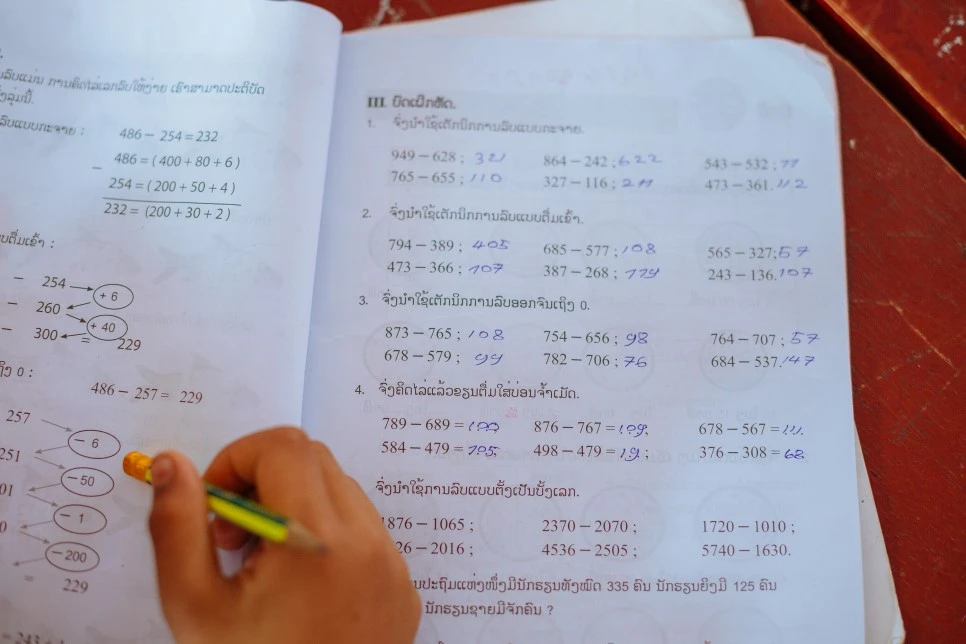 ລົບແມ່ນ ການຄິດໄລ່ເລກລົບໃຫ້ງ່າຍ ເຮົາສາມາດປະຕິບັດ
ລຸ່ມນີ້.
ລົບແບບກະຈາຍ :
486 − 254 = 232
486 = (400 + 80 + 6)
−
254 = (200 + 50 + 4)
232 = (200 + 30 + 2)
ແບບຕື່ມເຂົ້າ :
− 254 + 6
− 260
+ 40
− 300 = 229
0 :
486 − 257 = 229
257
− 6
251
− 50
01
− 1
0
− 200
= 229
III. ບົດເຝິກຫັດ.
1. ຈົ່ງນຳໃຊ້ເຕັກນິກການລົບແບບກະຈາຍ.
949 − 628 ; 321 864 − 242 ; 622 543 − 532 ; 11
765 − 655 ; 110 327 − 116 ; 211 473 − 361. 112
2. ຈົ່ງນຳໃຊ້ເຕັກນິກການລົບແບບຕື່ມເຂົ້າ.
794 − 389 ; 405 685 − 577 ; 108 565 − 327;
473 − 366 ; 107 387 − 268 ; 119 243 − 136. 107
3. ຈົ່ງນຳໃຊ້ເຕັກນິກການລົບອອກຈົນເຖິງ 0.
873 − 765 ; 108 754 − 656 ; 98 764 − 707 ; 57
678 − 579 ; 99 782 − 706 ; 76 684 − 537. 147
4. ຈົ່ງຄິດໄລ່ແລ້ວຂຽນຕື່ມໃສ່ບ່ອນຈ້ຳເມັດ.
789 − 689 = 100 876 − 767 = 109; 678 − 567 = 111.
584 − 479 = 105 498 − 479 = 19 ; 376 − 308 = 68
ຈົ່ງນຳໃຊ້ການລົບແບບຕັ້ງເປັນບັ້ງເລກ.
1876 − 1065 ; 2370 − 2070 ; 1720 − 1010 ;
26 − 2016 ; 4536 − 2505 ; 5740 − 1630.
ປະຖົມແຫ່ງໜຶ່ງມີນັກຮຽນທັງໝົດ 335 ຄົນ ນັກຮຽນຍິງມີ 125 ຄົນ
ນັກຮຽນຊາຍມີຈັກຄົນ ?